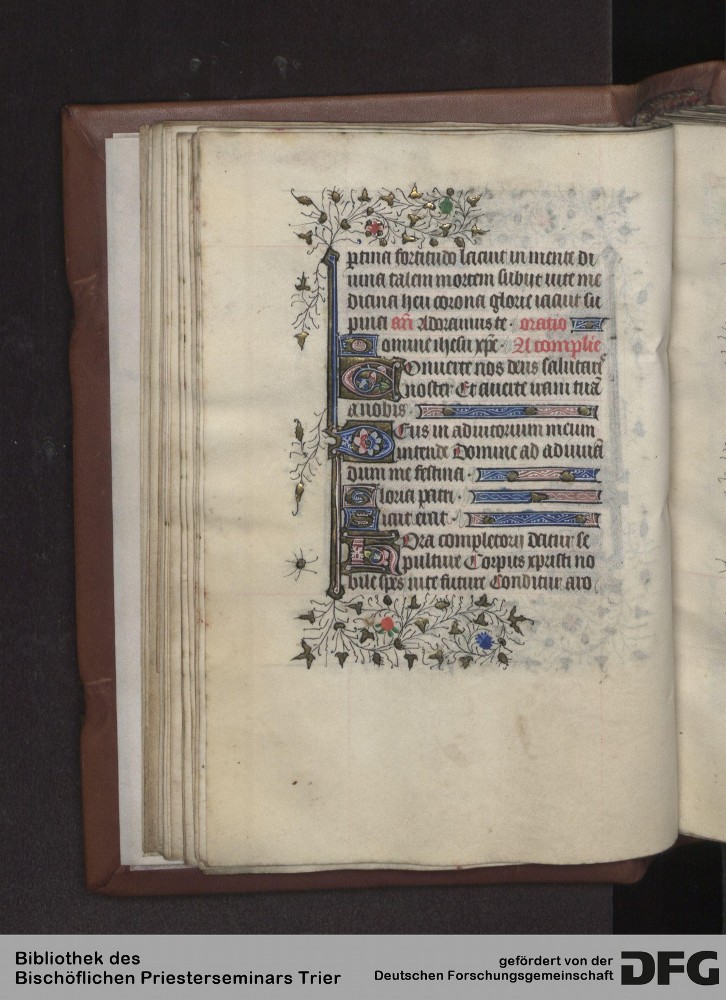 ptina fortitudo latuit in mente di
uina talem mortem subijt uite me
dicina heu corona glorie iacuit su
pina an Adoramus te · oratio
Domine ihesu xpe · A complie
Conuerte nos deus salutaris
noster Et auerte iram tuã
a nobis ·
Deus in adiutorium meum
intende Domine ad adiuuã
dum me festina ·
Gloria patri ·
Sicut erat ·
Hora completorij datur se
pulture Corpus xpristi no
bile spes uite future Conditur aro
Bibliothek des
Bischöflichen Priesterseminars Trier
gefördert von der
Deutschen Forschungsgemeinschaft
DFG